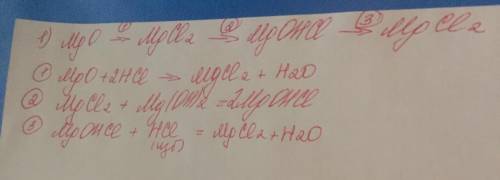 1) MgO →① MgCl2 →② MgOHCl →③ MgCl2
① MgO + 2HCl → MgCl2 + H2O
② MgCl2 + Mg(OH)2 = 2MgOHCl
③ MgOHCl + HCl = MgCl2 + H2O
(изб)